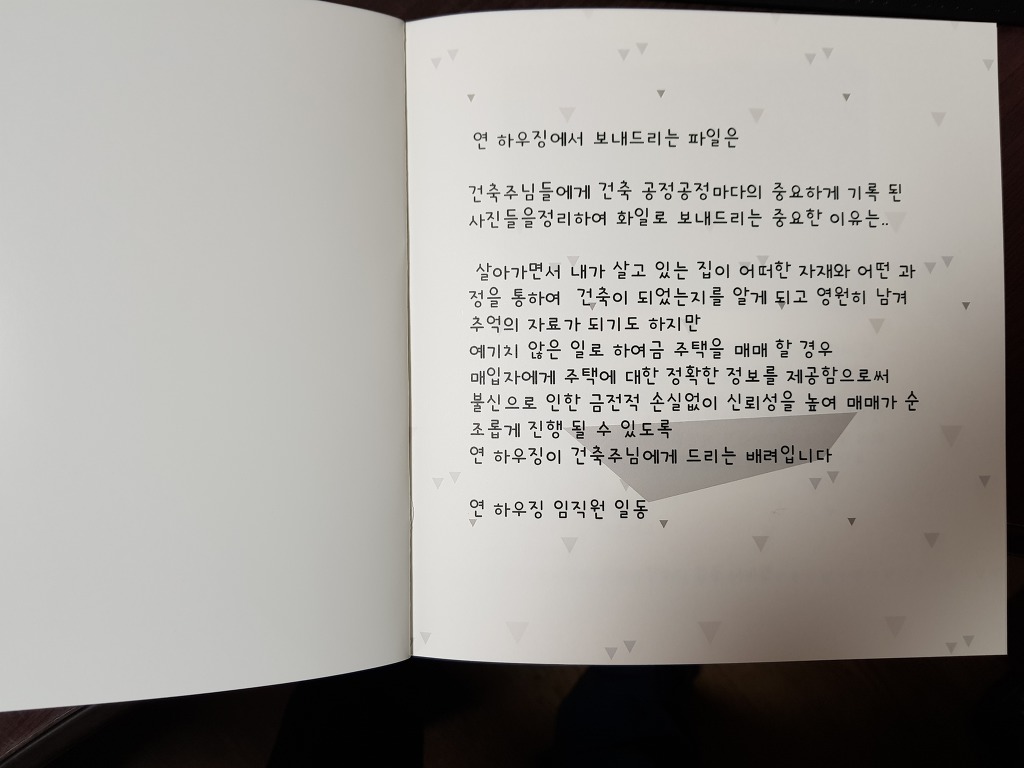 연 하우징에서 보내드리는 파일은
건축주님들에게 건축 공정공정마다의 중요하게 기록 된
사진들을정리하여 화일로 보내드리는 중요한 이유는..
살아가면서 내가 살고 있는 집이 어떠한 자재와 어떤 과
정을 통하여 건축이 되었는지를 알게 되고 영원히 남겨
추억의 자료가 되기도 하지만
예기치 않은 일로 하여금 주택을 매매 할 경우
매입자에게 주택에 대한 정확한 정보를 제공함으로써
불신으로 인한 금전적 손실없이 신뢰성을 높여 매매가 순
조롭게 진행 될 수 있도록
연 하우징이 건축주님에게 드리는 배려입니다
연 하우징 임직원 일동